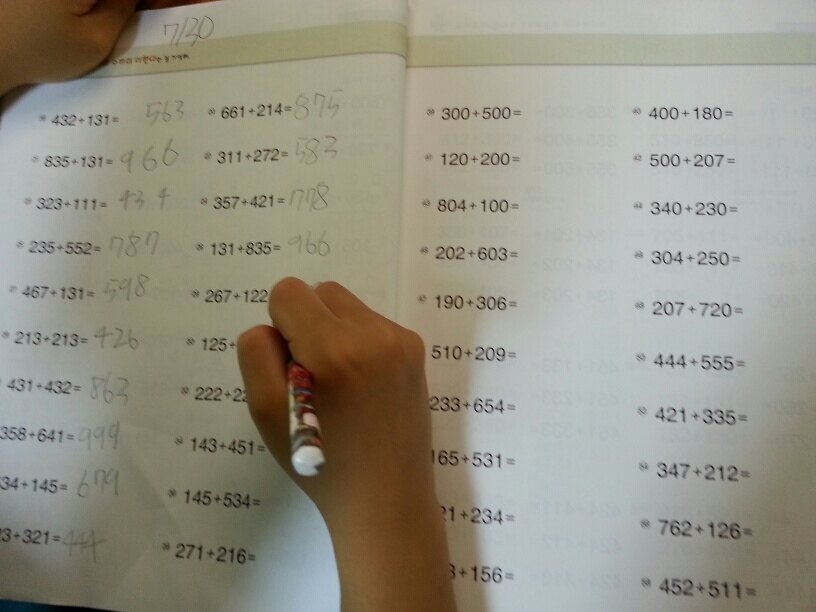 7/30
432+131= 563
835+131= 966
323+111= 434
235+552= 787
467+131= 598
213+213= 426
431+432= 863
358+641= 999
34+145= 679
3+321= 444
661+214= 875
311+272= 583
357+421= 778
131+835= 966
267+122
125+
222+22
143+451=
145+534=
271+216=
300+500=
120+200=
804+100=
202+603=
190+306=
510+209=
233+654=
165+531=
21+234=
3+156=
400+180=
500+207=
340+230=
304+250=
207+720=
444+555=
421+335=
347+212=
762+126=
452+511=